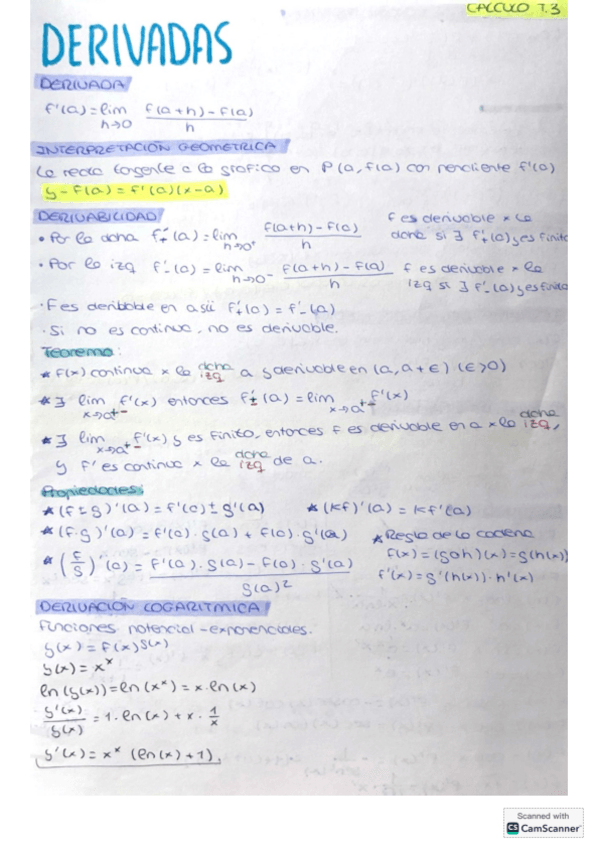 CALCULO T.3
DERIVADAS
DERIVADA
f'(a) = lim h→0 f(a+h) - f(a) / h
INTERPRETACIÓN GEOMÉTRICA
La recta tangente a la gráfica en P(a, f(a)) con pendiente f'(a)
y - f(a) = f'(a)(x-a)
DERIVABILIDAD
• Por la dcha f'₊(a) = lim h→0⁺ f(a+h) - f(a) / h f es derivable x la dcha si ∃ f'₊(a) y es finito
• Por la izq f'₋(a) = lim h→0⁻ f(a+h) - f(a) / h f es derivable x la izq si ∃ f'₋(a) y es finito
· F es derivable en a sii f'₊(a) = f'₋(a)
· Si no es continua, no es derivable.
Teorema:
* F(x) continua x la dcha izq a y derivable en (a, a+ε) (ε>0)
* ∃ lim x→a⁺⁻ f'(x) entonces f'±(a) = lim x→a⁺⁻ f'(x)
* ∃ lim x→a⁺⁻ f'(x) y es finito, entonces f es derivable en a x la dcha izq,
y f' es continua x la dcha izq de a.
Propiedades:
* (f ± g)'(a) = f'(a) ± g'(a) * (kf)'(a) = kf'(a)
* (f·g)'(a) = f'(a)·g(a) + f(a)·g'(a) * Regla de la cadena
f(x) = (g∘h)(x) = g(h(x))
* (f/g)'(a) = f'(a)·g(a) - f(a)·g'(a) / g(a)² f'(x) = g'(h(x))·h'(x)
DERIVACIÓN LOGARÍTMICA
Funciones potencial-exponenciales.
g(x) = f(x)^g(x)
g(x) = x^x
ln(g(x)) = ln(x^x) = x·ln(x)
g'(x) / g(x) = 1·ln(x) + x·1/x
g'(x) = x^x (ln(x)+1)
Scanned with
CS CamScanner